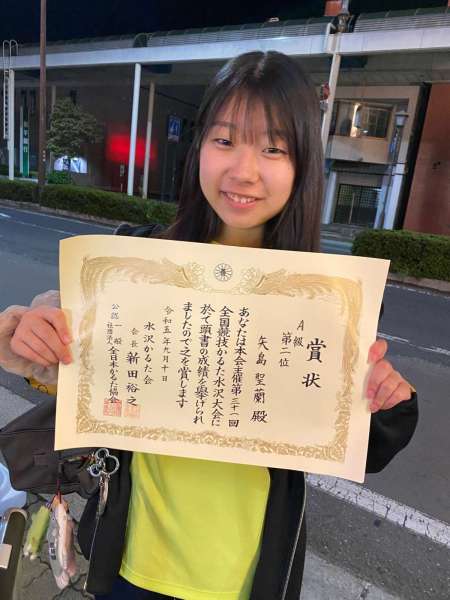 賞状
A級
第二位
矢島 聖蘭 殿
あなたは本会主催第三十一回
全国競技かるた水沢大会に
於て頭書の成績を挙げられ
ましたので之を賞します
令和五年九月十日
水沢かるた会
会長 新田裕之
公認 一般社団法人 全日本かるた協会